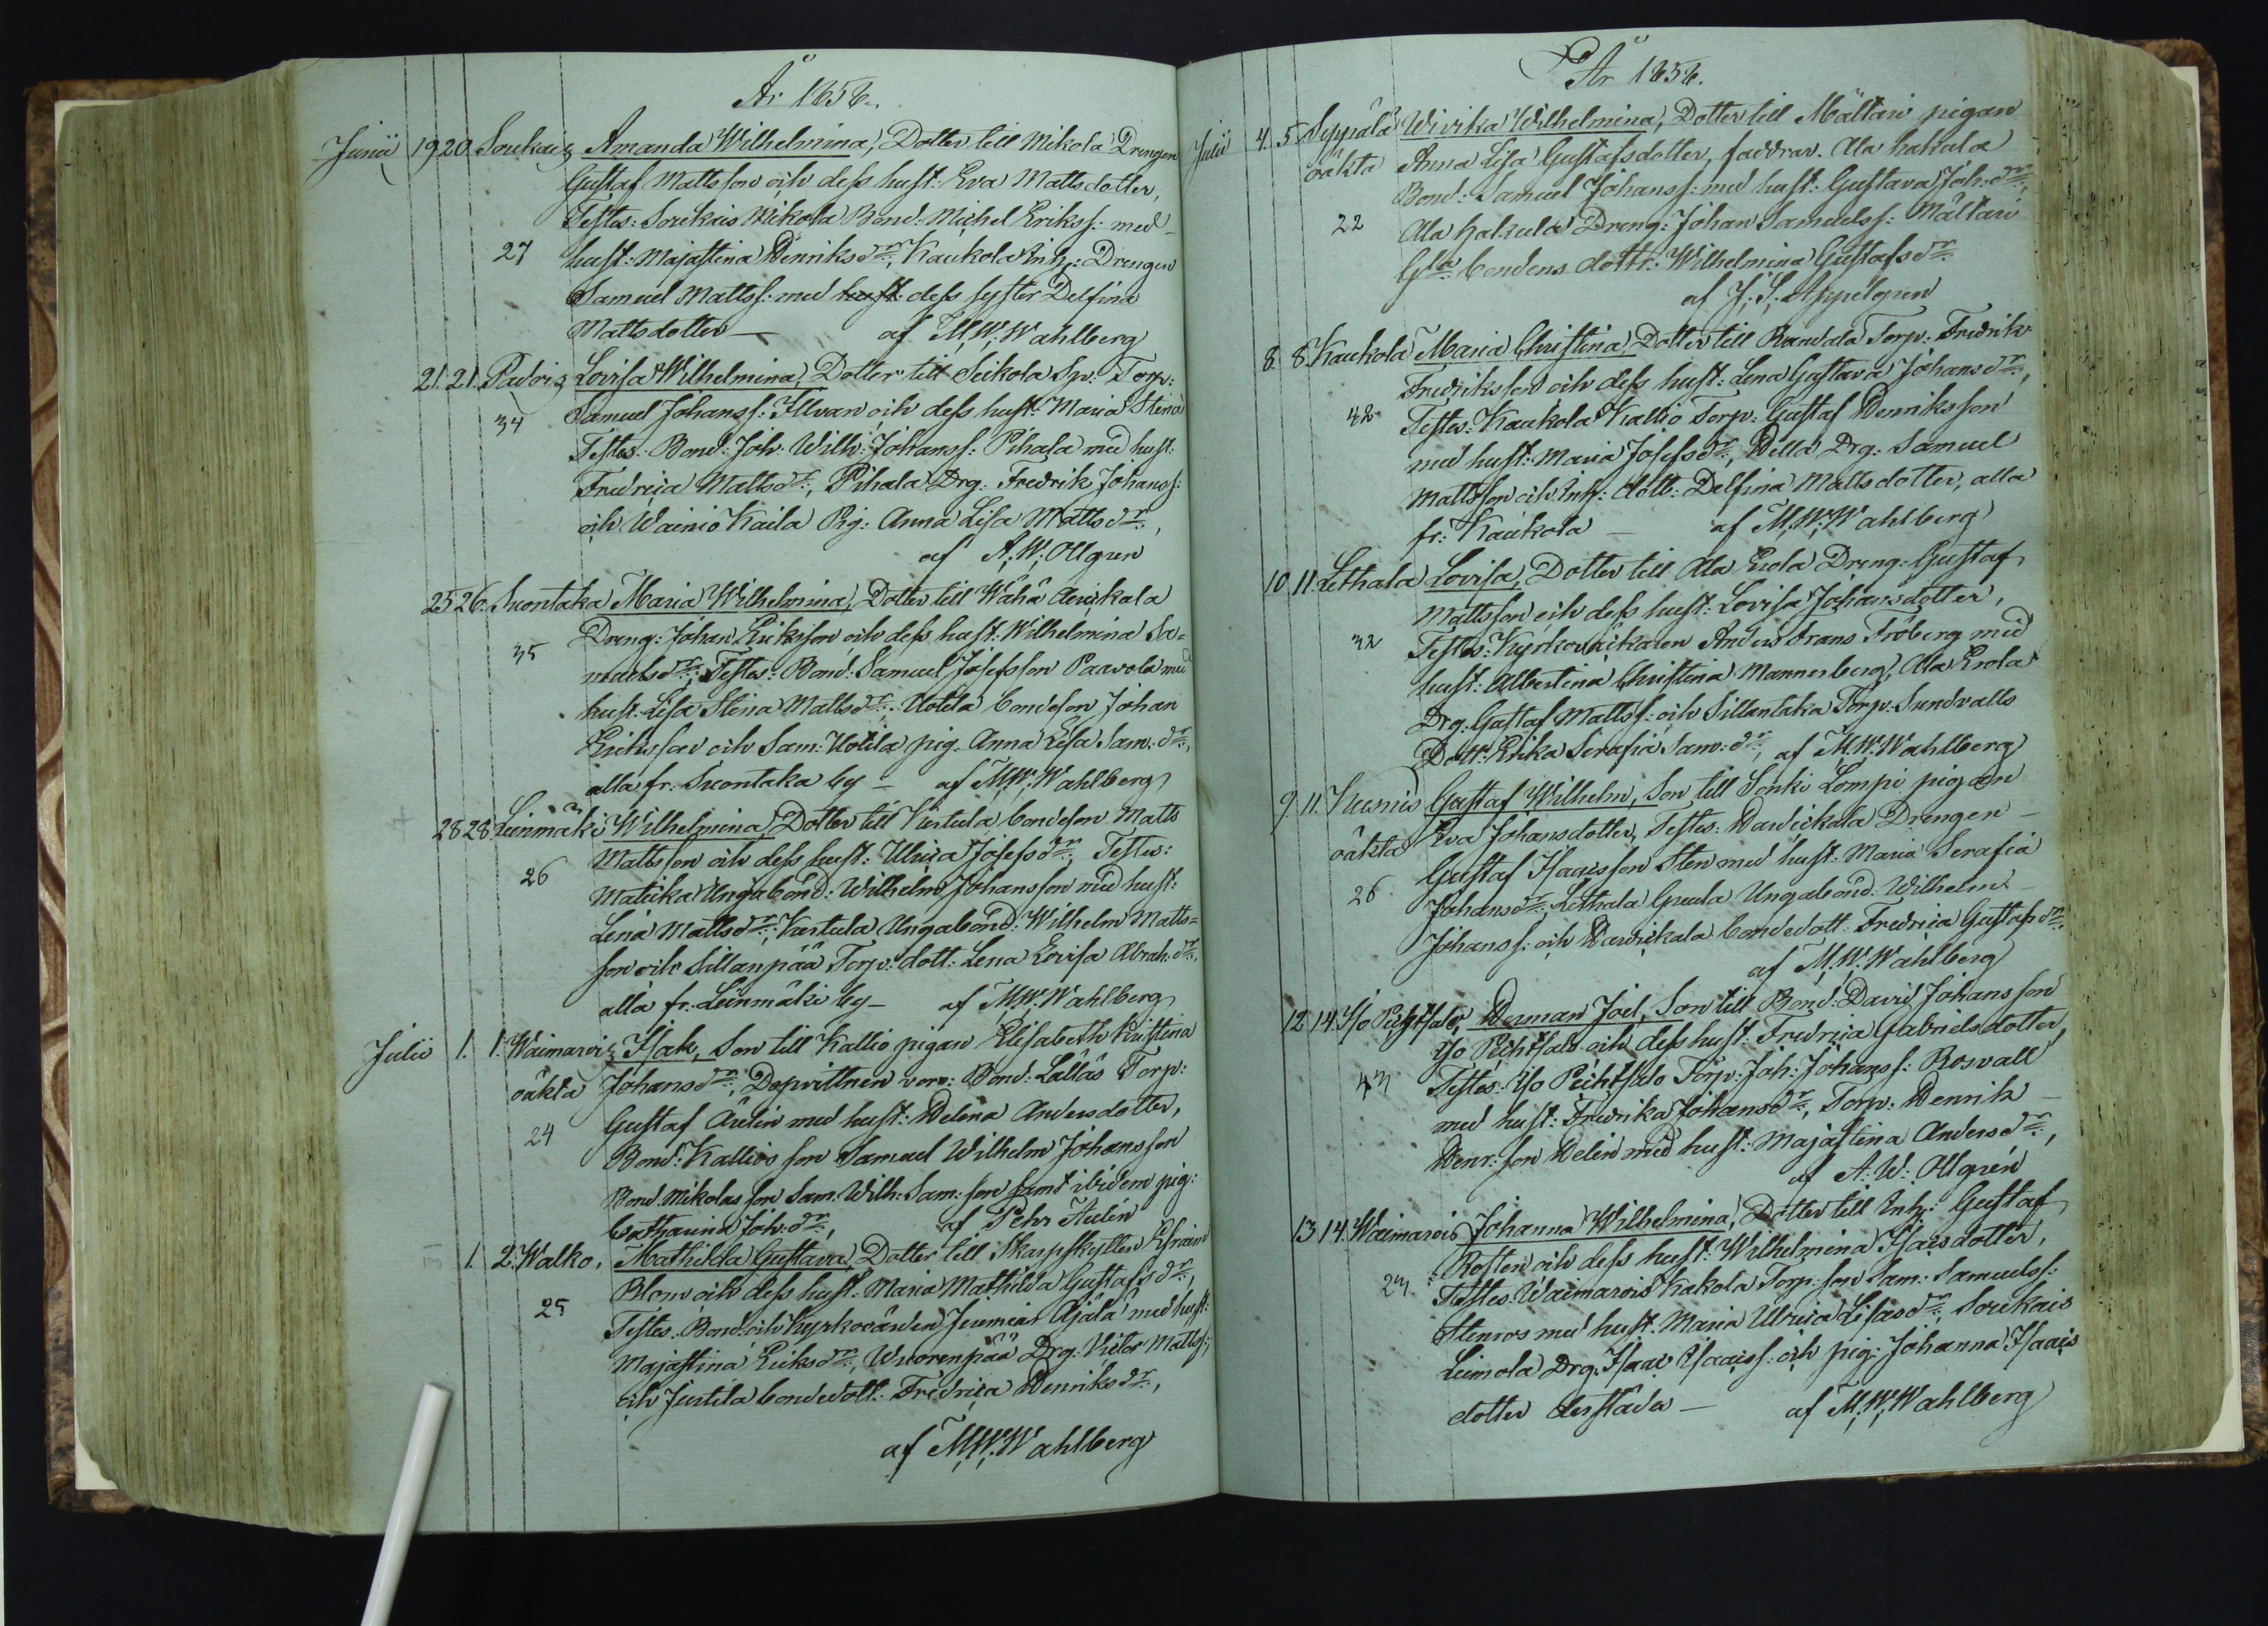 År 1858.
Junii 19. 20. Soukais, Amanda Wilhelmina, Dotter till Mikola Drengen
Gustaf Mattsson och dess hust: Eva Mattsdotter,
Testes: Soukais Mikola Bond: Michel Erikss: med
27 hust: Majastina Henriksdr:, Kaukola Inh: Drengen
Samuel Mattss: med hust: dess syster Delfina
Mattsdotter — af M.W. Wahlberg
21. 21. Lovisa Wilhelmina, Dotter till Seikola Sp: Torp:
34 Samuel Johanss: och dess hust: Maria Stina
Testes: Bond: Joh: Wilh: Johanss: Pihala med hust:
Fredrica Mattsdr:, Pihala Drg: Fredrik Johanss:
och Wainio Kaila Pig: Anna Lisa Mattsdr:,
af A.W. Ollgren
25 26. Suontaka Maria Wilhelmina, Dotter till Wähä
Dreng: Johan Eriksson och dess hust: Wilhelmina Sa=
35 muelsdr:, Testes: Bond: Samuel Josefsson Paavola med
hust: Lisa Stina Mattsdr:, Uotila bondeson Johan
Eriksson och Sam: Uotila pig: Anna Lisa Sam:dr:,
alla fr: Suontaka by — af M.W. Wahlberg
28 28 Leinmäki Wilhelmina, Dotter till bondeson Matts
Mattsson och dess hust: Ulrica Josefsdr:, Testes:
26 Ungabond: Wilhelm Johansson med hust:
Lena Mattsdr:, Ungabond: Wilhelm Matts=
son och Sillanpää Torp: dott: Lena Lovisa Abrah:dr:,
alla fr: Leinmäki by — af M.W. Wahlberg
Julii 1. 1. Waimarois, Isak, Son till Kallio pigan Elisabeth Kristina
oäkta Johansdr:, Dopvittnen voro: Bond: Torp:
24 Gustaf Aulin med hust: Helena Andersdotter,
Bond: Kallios son Samuel Wilhelm Johansson
Bond Mikolas son Sam: Wilh: Sam: son samt ibidem pig:
Catharina Joh:dr:, af Pehr Aulin
1. 2. Walko, Mathilda Gustava, Dotter till Skarpskytten Efraim
Blom och dess hust: Maria Mathilda Gustafsdr:,
25 Testes: Bond: och kyrkovärden Jeremias Äjälä med hust:
Majastina Eriksdr:, Wuorenpää Drg: Victor Mattss:,
och Juutila bondedott: Fredrica Henriksdr:,
af M.W. Wahlberg
År 1858.
Julii 4. 5. Seppälä Wivika Wilhelmina, Dotter till Mältäri pigan
oäkta Anna Lisa Gustafsdotter, faddrar. Ala hakula
Bond: Samuel Johanss: med hust: Gustava Joh:dr:,
22 Ala hakula Dreng: Johan Samuelss: Mältäri
Gla bondens dottr: Wilhelmina Gustafsdr:
af J.S. Appelgren
8. 8. Kaukola Maria Christina, Dotter till Randala Torp: Fredrik
Fredriksson och dess hust: Lena Gustava Johansdr:,
42 Testes: Kaukola Kallio Torp: Gustaf Henriksson
med hust: Maria Josefsdr:, Hella Drg: Samuel
Mattsson och Inh: dott: Delfina Mattsdotter, alla
fr: Kaukola — af M.W. Wahlberg
10. 11. Lethala Lovisa, Dotter till Ala Erola Dreng: Gustaf
Mattsson och dess hust: Lovisa Johansdotter,
32 Testes: Kyrkoväktaren Anders Frans Fröberg med
hust: Albertina Christina Mannerberg, Ala Erola
Drg: Gustaf Mattss: och Sillantaka Torp: Sundvalls
Dott: Erika Serafia Sam:dr:, af M.W. Wahlberg
9. 11. Gustaf Wilhelm, Son till Sonki Lompi pigan
oäkta Eva Johansdotter, Testes: Hawickala Drengen —
Gustaf Isaacsson Sten med hust: Maria Serafia
26 Johansdr:, Lethala Ungabond: Wilhelm —
Johanss: och Hawickala bondedott: Fredrica Gustafsdr:
af M.W. Wahlberg
12 14 Herman Joel, Son till Bond: David Johansson
och dess hust: Fredrica Gabrielsdotter,
Testes: Torp: Joh: Johanss: Roswall
med hust: Fredrika Johansdr:, Torp: Henrik —
Henr: son Helin med hust: Majastina Andersdr:,
af A.W. Ollgren
13 14. Waimarois Johanna Wilhelmina, Dotter till Inh: Gustaf
Rosten och dess hust: Wilhelmina Isacsdotter,
Testes: Waimarois Kakola Torp: son Sam: Samuelss:
Stenros med hust: Maria Ulrica Lisasdr:, Soukais
Leimola Drg: Isaac Isaacss: och pig: Johanna Isaacs
dotter derstädes — af M.W. Wahlberg